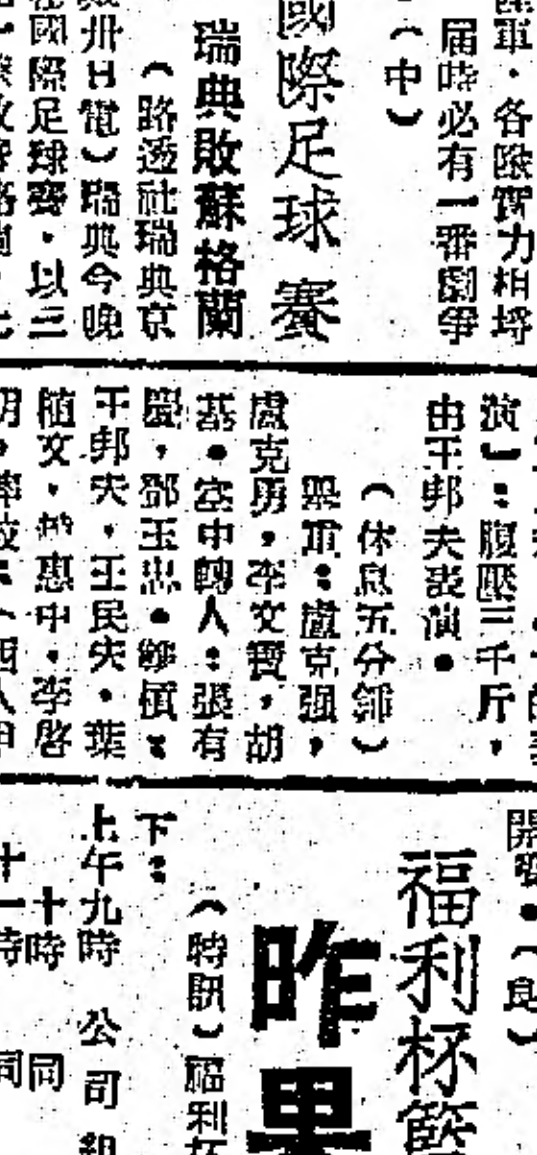 各隊實力相埒
届時必有一番劇爭
（中）
國際足球賽
瑞典敗蘇格蘭
（路透社瑞典京
卅日電）瑞典今晚
國際足球賽・以三
演」：腹壓三千斤，
由王邦夫表演●
（休息五分鐘）
舉重：盧克强，
盧克勇，李文寶，胡
基●空中轉人：張有
慶，鄧玉忠●
王邦夫，王民夫・葉
植文，惠中・李啓
開發●（良）
福利杯籃
昨
（特訊）福利杯
下：
上午九時 公司組
十時 同
十一時 同